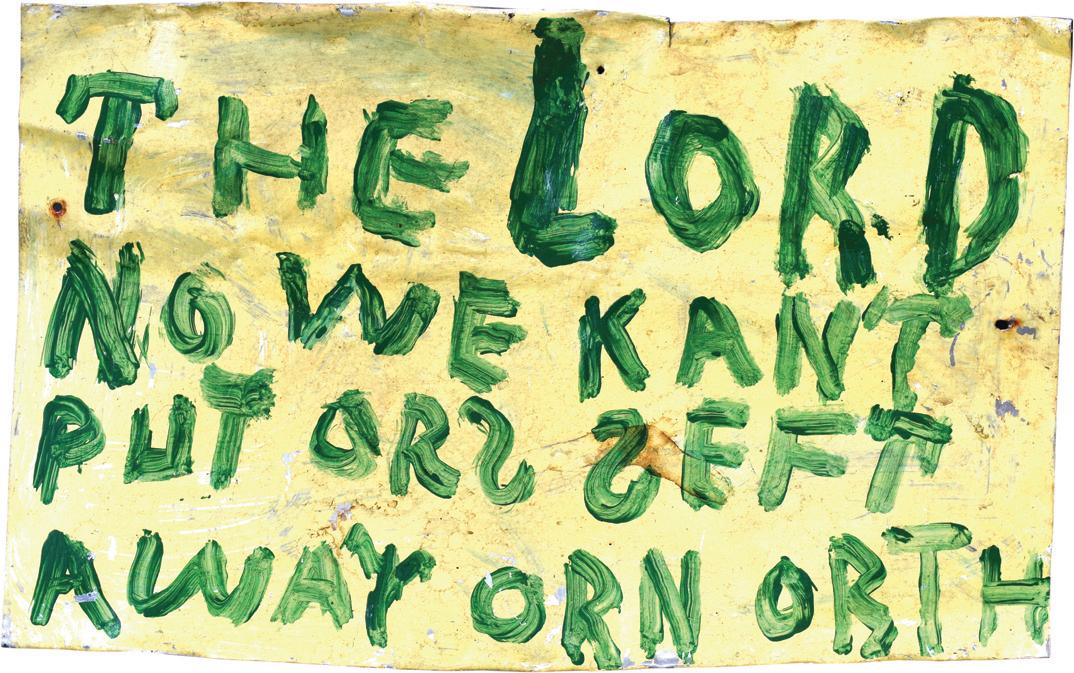 THE LORD
NO WE KAN'T
PUT ORS SEFT
AWAY ORN ORTH